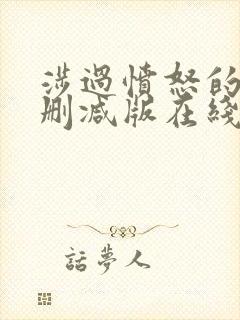 涉過憤怒的
刪減版在綫
話夢人